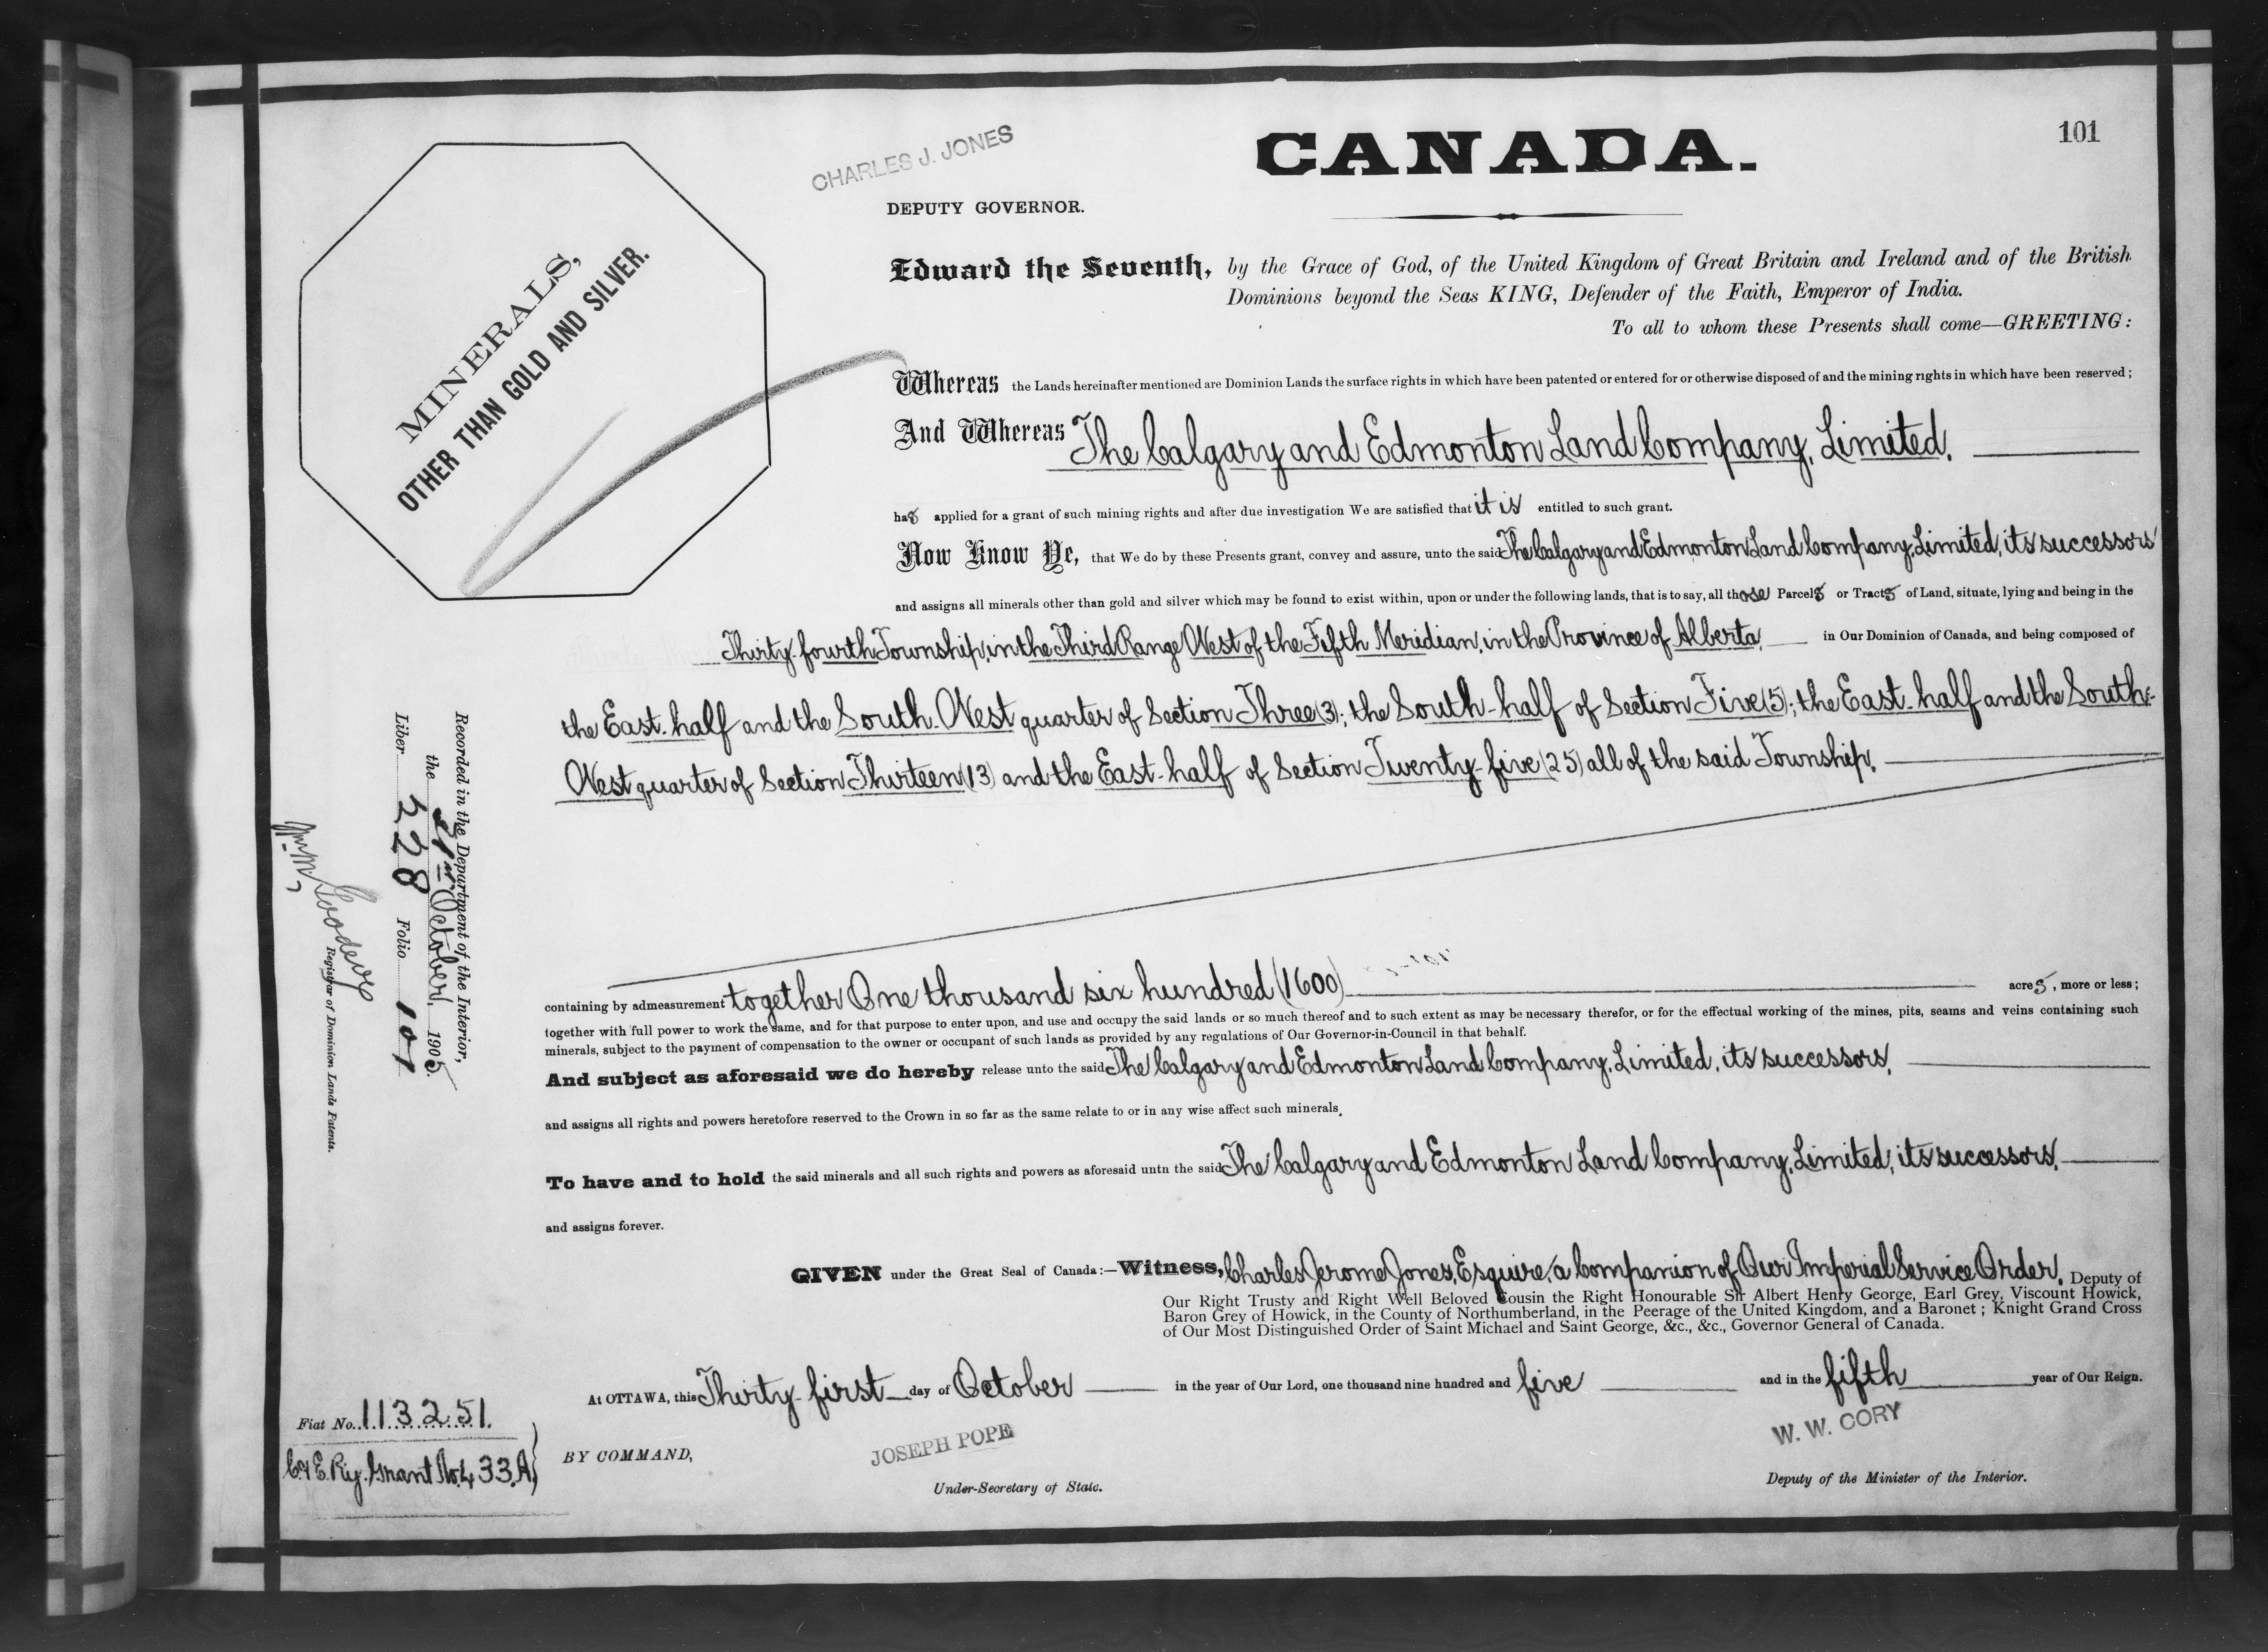 101
CANADA.
CHARLES J. JONES
DEPUTY GOVERNOR.
MINERALS,
OTHER THAN GOLD AND SILVER.
Edward the Seventh, by the Grace of God, of the United Kingdom of Great Britain and Ireland and of the British
Dominions beyond the Seas KING, Defender of the Faith, Emperor of India.
To all to whom these Presents shall come—GREETING:
Whereas the Lands hereinafter mentioned are Dominion Lands the surface rights in which have been patented or entered for or otherwise disposed of and the mining rights in which have been reserved;
And Whereas The Calgary and Edmonton Land Company, Limited,
has applied for a grant of such mining rights and after due investigation We are satisfied that it is entitled to such grant.
Now Know Ye, that We do by these Presents grant, convey and assure, unto the said The Calgary and Edmonton Land Company, Limited, its successors
and assigns all minerals other than gold and silver which may be found to exist within, upon or under the following lands, that is to say, all those Parcels or Tracts of Land, situate, lying and being in the
Thirty-fourth Township, in the Third Range West of the Fifth Meridian, in the Province of Alberta, in Our Dominion of Canada, and being composed of
the East-half and the South-West quarter of Section Three (3); the South-half of Section Five (5); the East-half and the South-
West quarter of Section Thirteen (13) and the East-half of Section Twenty-five (25) all of the said Township,
containing by admeasurement together One thousand six hundred (1600) acres, more or less;
together with full power to work the same, and for that purpose to enter upon, and use and occupy the said lands or so much thereof and to such extent as may be necessary therefor, or for the effectual working of the mines, pits, seams and veins containing such
minerals, subject to the payment of compensation to the owner or occupant of such lands as provided by any regulations of Our Governor-in-Council in that behalf.
And subject as aforesaid we do hereby release unto the said The Calgary and Edmonton Land Company, Limited, its successors,
and assigns all rights and powers heretofore reserved to the Crown in so far as the same relate to or in any wise affect such minerals,
To have and to hold the said minerals and all such rights and powers as aforesaid untn the said The Calgary and Edmonton Land Company, Limited, its successors,
and assigns forever.
GIVEN under the Great Seal of Canada:—Witness, Charles Jerome Jones, Esquire, a Companion of Our Imperial Service Order, Deputy of
Our Right Trusty and Right Well Beloved Cousin the Right Honourable Sir Albert Henry George, Earl Grey, Viscount Howick,
Baron Grey of Howick, in the County of Northumberland, in the Peerage of the United Kingdom, and a Baronet; Knight Grand Cross
of Our Most Distinguished Order of Saint Michael and Saint George, &c., &c., Governor General of Canada.
At OTTAWA, this Thirty-first day of October in the year of Our Lord, one thousand nine hundred and five and in the fifth year of Our Reign.
BY COMMAND,
JOSEPH POPE
Under-Secretary of State.
W. W. CORY
Deputy of the Minister of the Interior.
Recorded in the Department of the Interior,
the 31st October, 1905.
Liber 228 Folio 101
Wm. M. Goodeve
Registrar of Dominion Lands Patents.
Fiat No. 113251.
C. & E. Ry. Grant No. 433.A.